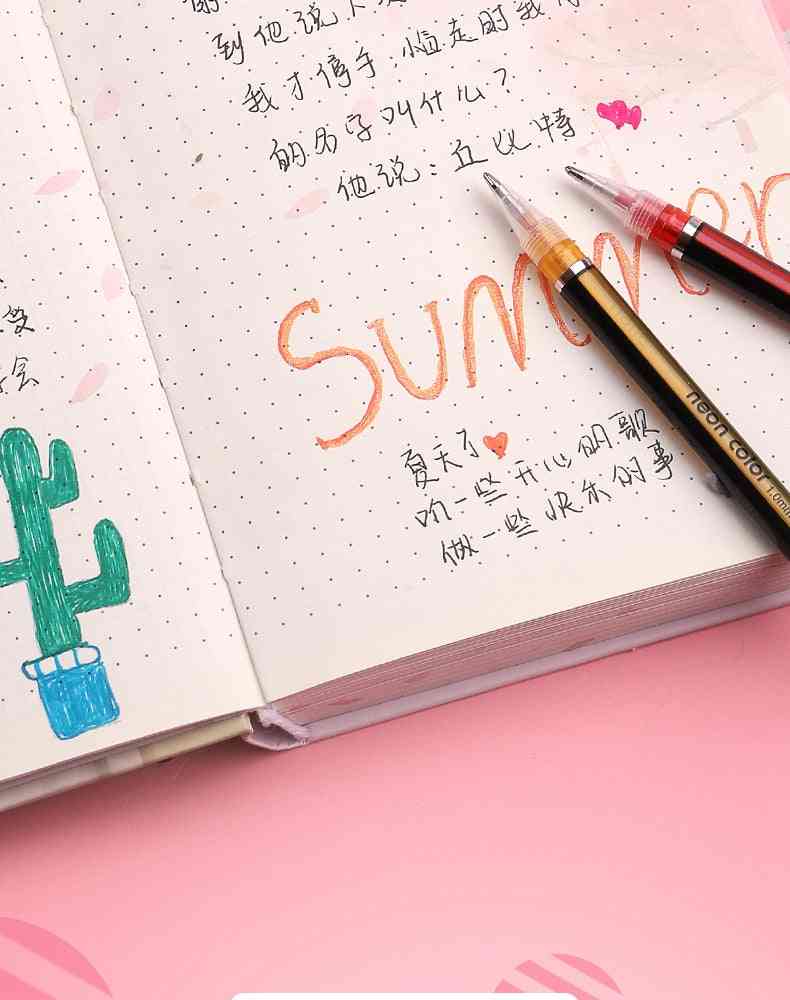 到他说
我才停手,临走时我
的名字叫什么?
他说:丘比特
受
会
Summer
夏天了
听一些开心的歌
做一些快乐的事
neon color 1.0mm